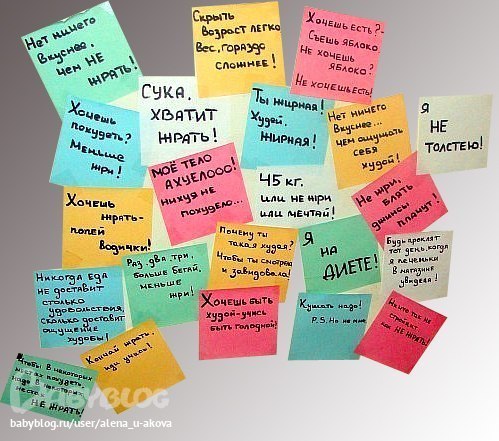 Нет ничего
вкуснее,
чем НЕ
ЖРАТЬ!
Скрыть
возраст легко
вес, гораздо
сложнее!
Хочешь есть?-
Съешь яблоко
Не хочешь
яблоко?
Не хочешь есть!
Хочешь
похудеть?
Меньше
жри!
СУКА,
ХВАТИТ
ЖРАТЬ!
Ты жирная!
Худей,
ЖИРНАЯ!
Нет ничего
вкуснее...
чем ощущать
себя
худой!
Я
НЕ
ТОЛСТЕЮ!
Хочешь
жрать-
попей
водички!
МОЁ ТЕЛО
АХУЕЛООО!
НИХУЯ НЕ
ПОХУДЕЛО...
45 кг.
или не жри
или мечтай!
Не жри,
блять
джинсы
плачут!
Никогда еда
не доставит
столько
удовольствия,
сколько доставит
ощущение
худобы!
Раз два три,
больше бегай,
меньше
жри!
Почему ты
такая худая?
Чтобы ты смотрела
и завидовала!
Я
НА
ДИЕТЕ!
Будь проклят
тот день, когда
я печеньки
в магазине
увидела!
Хочешь быть
худой-учись
быть голодной!
Кушать надо!
P.S. Но не мне
НЕ ЖРАТЬ!
Чтобы в некоторых
местах похудеть,
надо в некоторых
местах
НЕ ЖРАТЬ!
Кончай жрать,
иди учись!
BABYBLOG
babyblog.ru/user/alena_u-akova